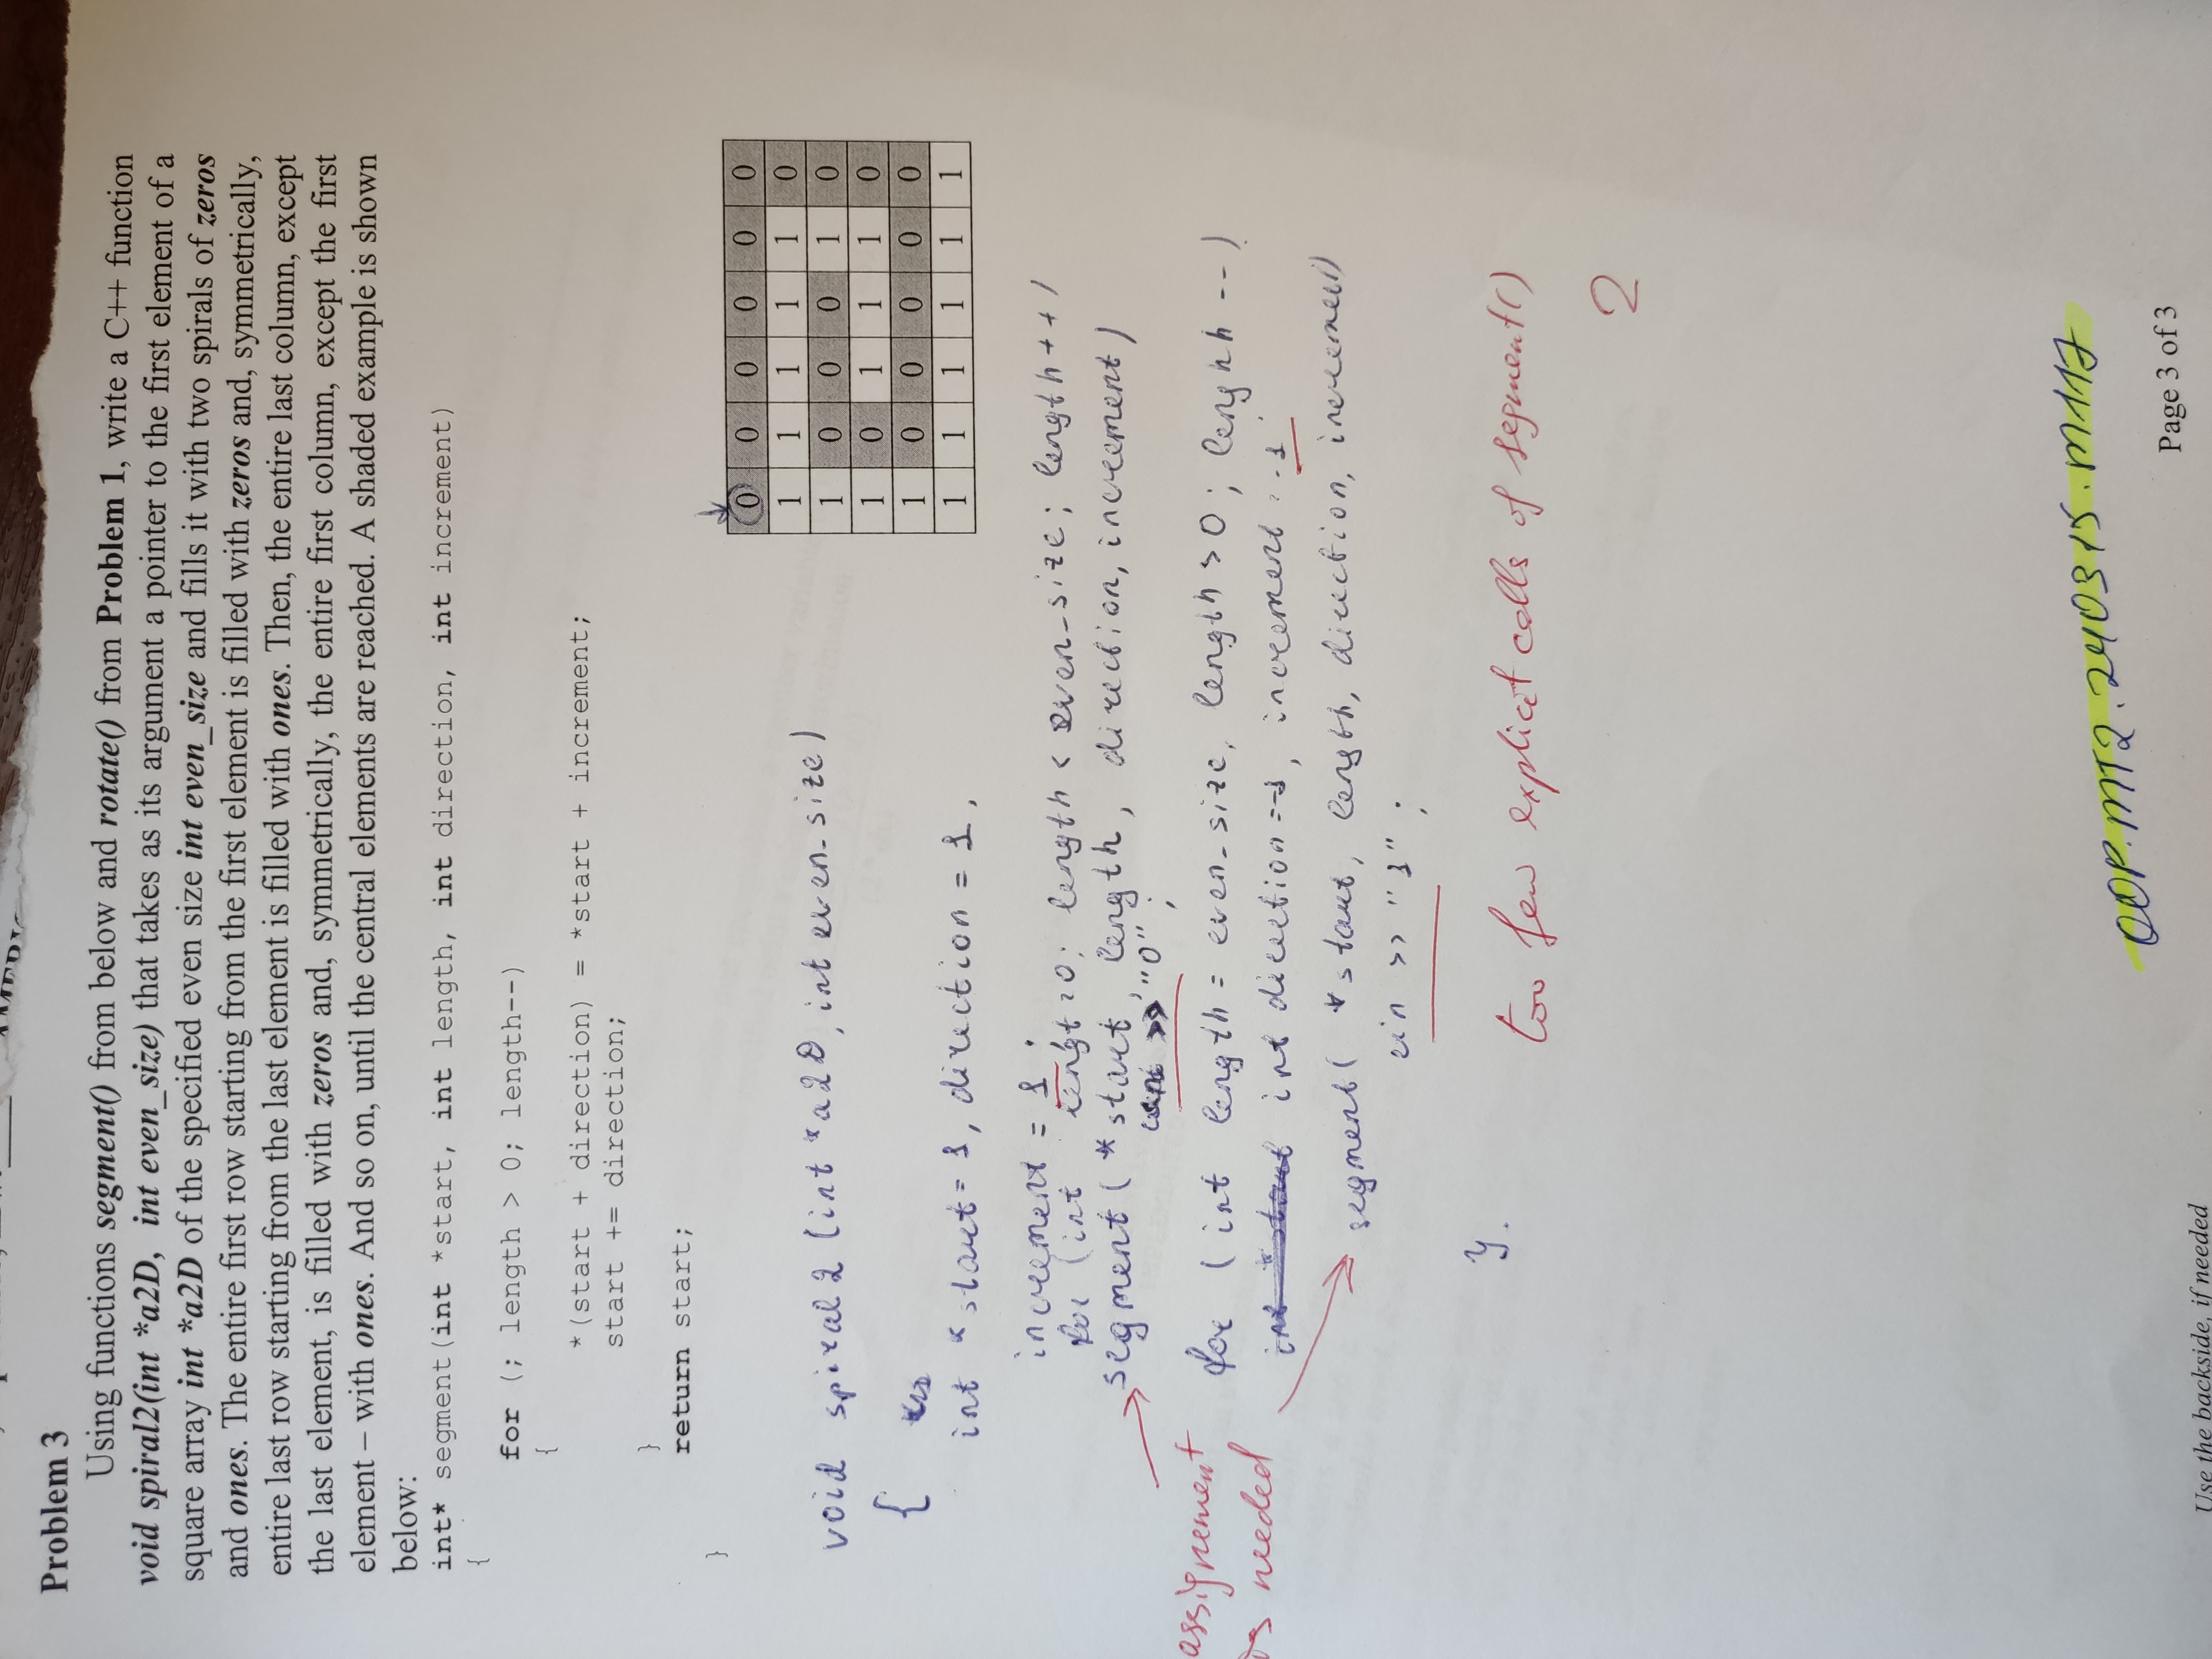 Problem 3
Using functions segment() from below and rotate() from Problem 1, write a C++ function
void spiral2(int *a2D, int even_size) that takes as its argument a pointer to the first element of a
square array int *a2D of the specified even size int even_size and fills it with two spirals of zeros
and ones. The entire first row starting from the first element is filled with zeros and, symmetrically,
entire last row starting from the last element is filled with ones. Then, the entire last column, except
the last element, is filled with zeros and, symmetrically, the entire first column, except the first
element – with ones. And so on, until the central elements are reached. A shaded example is shown
below:
int* segment(int *start, int length, int direction, int increment)
{
for (; length > 0; length--)
{
*(start + direction) = *start + increment;
start += direction;
}
return start;
}
0 0 0 0 0 0
1 1 1 1 1 0
1 0 0 0 1 0
1 0 1 1 1 0
1 0 0 0 0 0
1 1 1 1 1 1
void spiral2 (int *a2D, int even_size)
{
int *start = 1, direction = 1,
increment = 1;
for (int lengt=0; length < even_size; length++)
segment( *start, length, direction, increment)
>> "0";
assignement
is needed
for (int length = even_size, length > 0; lenghh --)
int direction = -1, increment = -1
segment( *start, length, direction, increment)
cin >> "1";
}.
too few explicit calls of segment()
2
OOP.MT2.240315.M117
Page 3 of 3
Use the backside, if needed